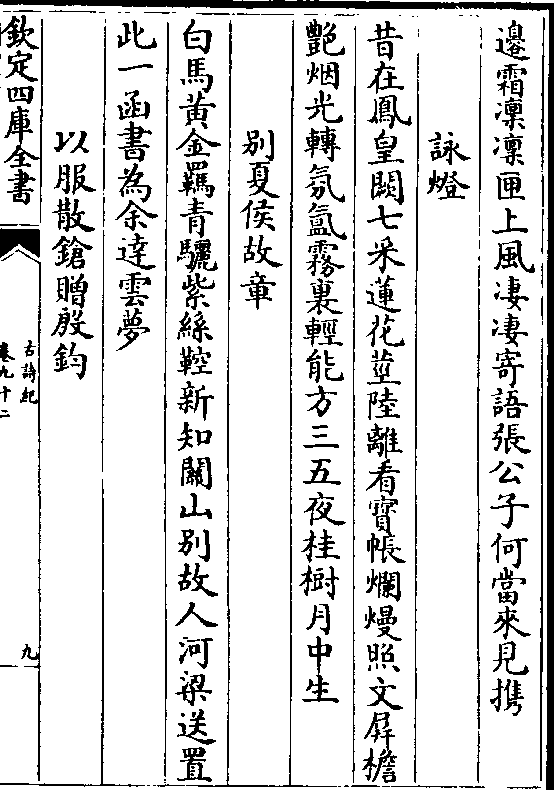 邊霜凜凜匣上風凄凄寄語張公子何當來見携
詠燈
昔在鳳皇闕七采蓮花莖陸離看寶帳爛熳照文屏檐
艷烟光轉氛氲霧裏輕能方三五夜桂樹月中生
别夏侯故章
白馬黃金羈青驪紫絲鞚新知關山别故人河梁送置
此一函書為余達雲夢
以服散鎗贈殷鈞
欽定四庫全書
古詩紀
卷九十二
九